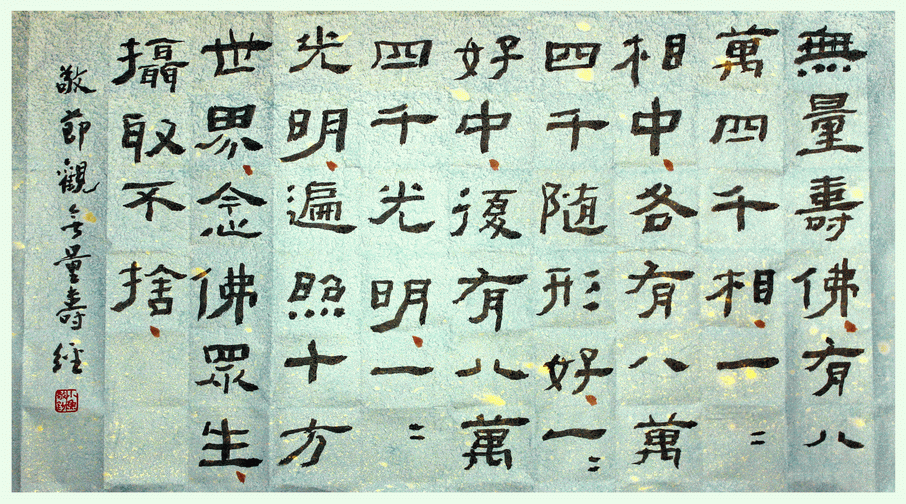 無量壽佛有八
萬四千相一〻
相中各有八萬
四千随形好一〻
好中復有八萬
四千光明一〻
光明遍照十方
世界念佛眾生
攝取不捨
敬節觀无量壽經